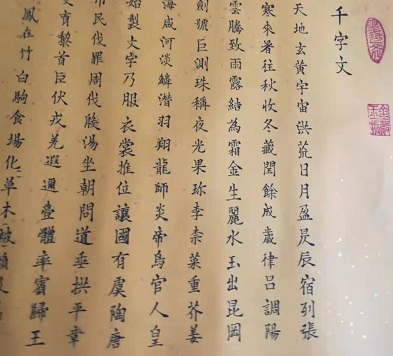 千字文
天地玄黄宇宙洪荒日月盈昃辰宿列張
寒來暑往秋收冬藏閏餘成歲律呂調陽
雲騰致雨露結為霜金生麗水玉出昆岡
劍號巨闕珠稱夜光果珍李柰菜重芥姜
海咸河淡鱗潛羽翔龍師炎帝鳥官人皇
始製文字乃服衣裳推位讓國有虞陶唐
民伐罪周伐殷湯坐朝問道垂拱平章
育黎首臣伏戎羌遐邇壹體率賓歸王
鳳在竹白駒食場化草木被賴